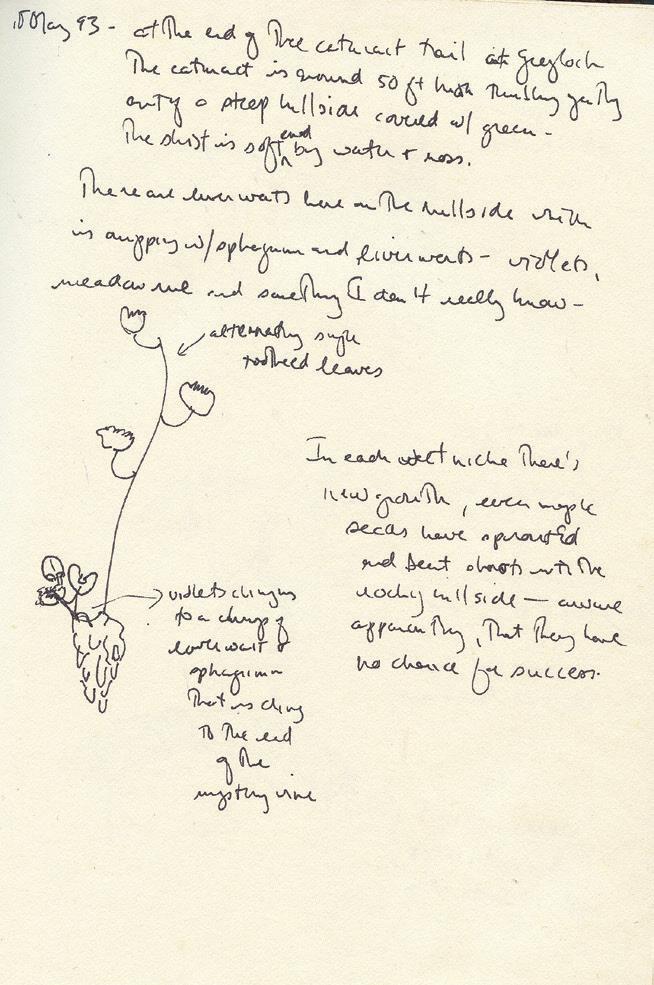 May 93 - at the end of the cataract trail at Greylock
The cataract is around 50 ft high tumbling gently
out of a steep hillside covered w/ green -
The schist is softened by water + moss.
There are liverworts here on the hillside which
is dripping w/ sphagnum and liverworts - violets,
meadow rue and something I don't really know -
alternating single
toothed leaves
In each wet niche there's
new growth, even maple
seeds have sprouted
and sent shoots into the
rocky hillside — aware
apparently, that they have
no chance for success.
violets clinging
to a clump of
liverwort &
sphagnum
That is cling
to the end
of the
mystery vine